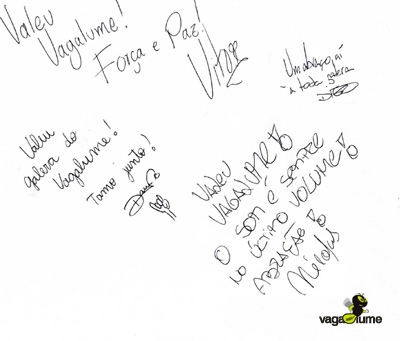 Valeu
Vagalume!
Força e Paz!
Vitor
Um abraço
a toda galera
Valeu
galera do
Vagalume!
Tamo junto!
VALEU
VAGALUME!
O SOM É SEMPRE
NO ÚLTIMO VOLUME!
ABRAÇÃO!
Nicolas
vagalume